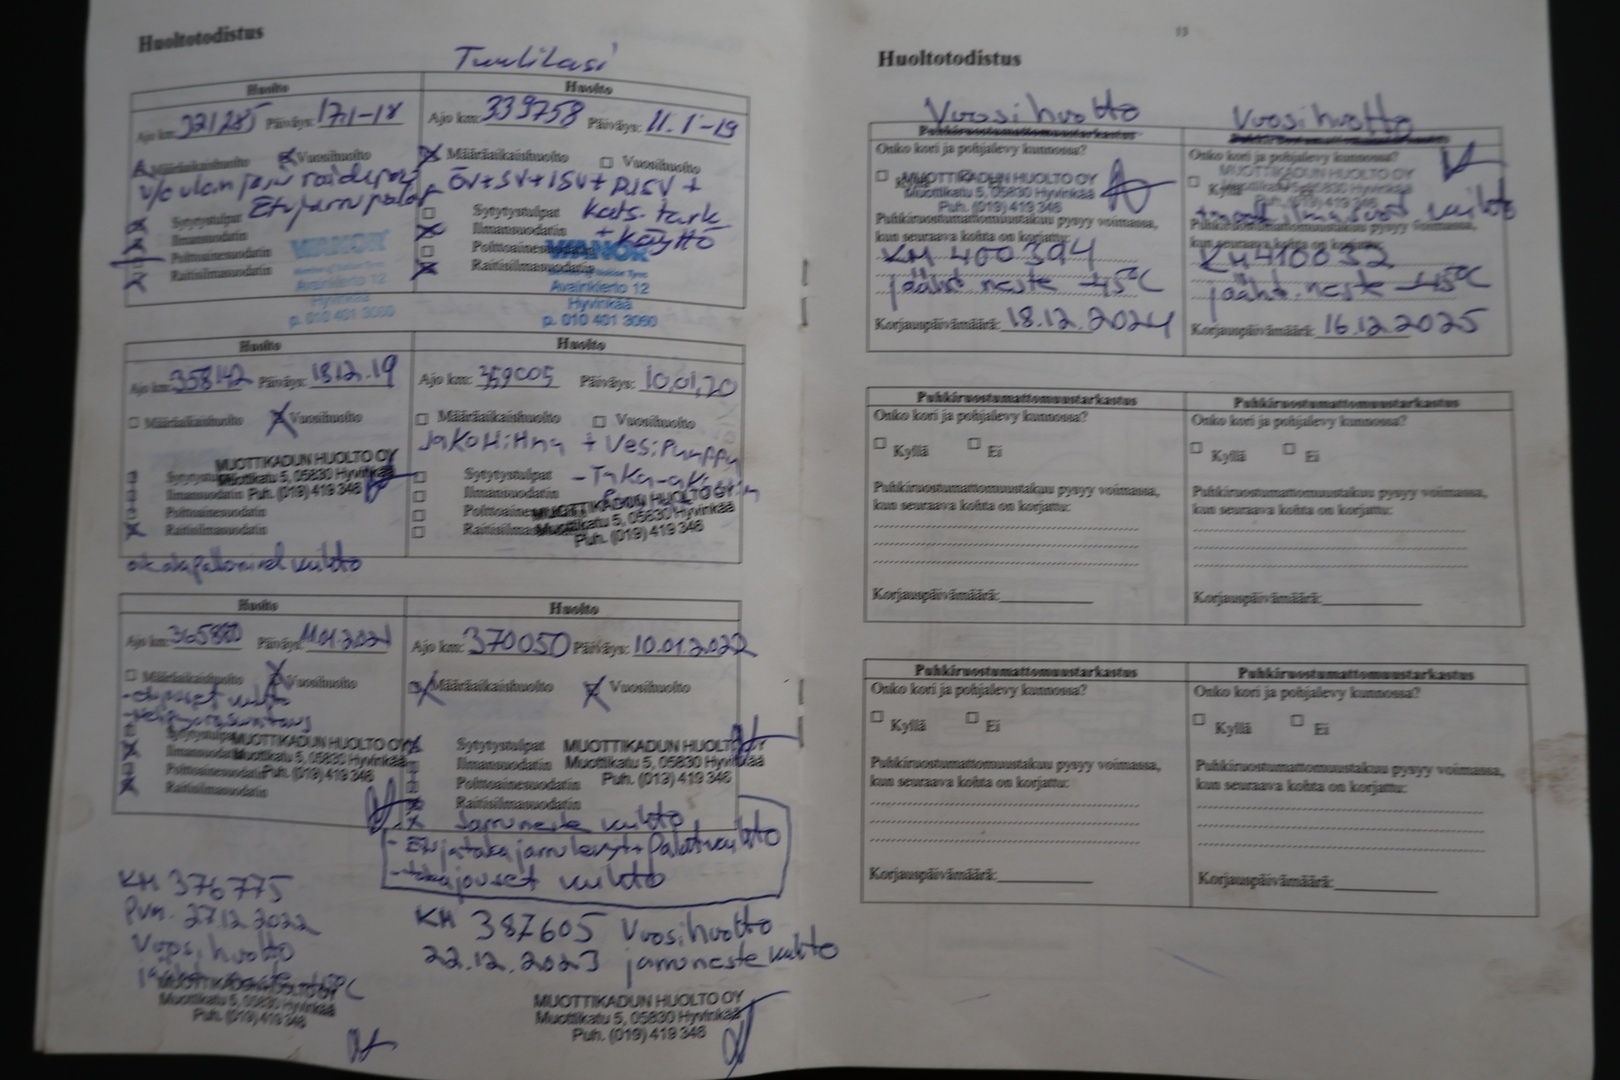 Huoltotodistus
Tuulilasi
Huolto
Ajo km: 321285 Päiväys: 17.1-18
Määräaikaishuolto Vuosihuolto
Etujarrupalat
Sytytystulpat
Ilmansuodatin
Polttoainesuodatin
Raitisilmasuodatin
VIANOR
Avainkierto 12
Hyvinkää
p. 010 401 3060
Huolto
Ajo km: 339758 Päiväys: 11.1-19
Määräaikaishuolto Vuosihuolto
ÖV+SV+ISV+RISV+
Kats. tark
+ Käyttö
Sytytystulpat
Ilmansuodatin
Polttoainesuodatin
Raitisilmasuodatin
VIANOR
Avainkierto 12
Hyvinkää
p. 010 401 3060
Huolto
Ajo km: 358142 Päiväys: 18.12.19
Määräaikaishuolto Vuosihuolto
MUOTTIKADUN HUOLTO OY
Muottikatu 5, 05830 Hyvinkää
Puh. (019) 419 346
Sytytystulpat
Ilmansuodatin
Polttoainesuodatin
Raitisilmasuodatin
vaihto
Huolto
Ajo km: 359005 Päiväys: 10.01.20
Määräaikaishuolto Vuosihuolto
JakoHihna + VesiPumppu
Sytytystulpat
Ilmansuodatin
Polttoainesuodatin
Raitisilmasuodatin
MUOTTIKADUN HUOLTO OY
Muottikatu 5, 05830 Hyvinkää
Puh. (019) 419 346
Huolto
Ajo km: Päiväys: 11.01.2021
Määräaikaishuolto Vuosihuolto
vaihto
Sytytystulpat
Ilmansuodatin
Polttoainesuodatin
Raitisilmasuodatin
MUOTTIKADUN HUOLTO OY
Muottikatu 5, 05830 Hyvinkää
Puh. (019) 419 346
Huolto
Ajo km: 370050 Päiväys: 10.01.2022
Määräaikaishuolto Vuosihuolto
Sytytystulpat
Ilmansuodatin
Polttoainesuodatin
Raitisilmasuodatin
MUOTTIKADUN HUOLTO OY
Muottikatu 5, 05830 Hyvinkää
Puh. (019) 419 346
Jarruneste vaihto
- Etu ja taka jarrulevyt+palat vaihto
- takajouset vaihto
KM 376775
Pvm. 27.12.2022
Vuosihuolto
MUOTTIKADUN HUOLTO OY
Muottikatu 5, 05830 Hyvinkää
Puh. (019) 419 346
KM 387605 Vuosihuolto
22.12.2023 jarruneste vaihto
MUOTTIKADUN HUOLTO OY
Muottikatu 5, 05830 Hyvinkää
Puh. (019) 419 346
13
Huoltotodistus
Vuosihuolto
Puhkiruostumattomuustarkastus
Onko kori ja pohjalevy kunnossa?
Kyllä
MUOTTIKADUN HUOLTO OY
Muottikatu 5, 05830 Hyvinkää
Puh. (019) 419 346
Puhkiruostumattomuustakuu pysyy voimassa,
kun seuraava kohta on korjattu:
KM 400394
jäähd. neste -45°C
Korjauspäivämäärä: 18.12.2024
Vuosihuolto
Puhkiruostumattomuustarkastus
Onko kori ja pohjalevy kunnossa?
Kyllä
MUOTTIKADUN HUOLTO OY
Muottikatu 5, 05830 Hyvinkää
Puh. (019) 419 346
vaihto
Puhkiruostumattomuustakuu pysyy voimassa,
kun seuraava kohta on korjattu:
KM 410032
jäähd. neste -45°C
Korjauspäivämäärä: 16.12.2025
Puhkiruostumattomuustarkastus
Onko kori ja pohjalevy kunnossa?
Kyllä Ei
Puhkiruostumattomuustakuu pysyy voimassa,
kun seuraava kohta on korjattu:
Korjauspäivämäärä:
Puhkiruostumattomuustarkastus
Onko kori ja pohjalevy kunnossa?
Kyllä Ei
Puhkiruostumattomuustakuu pysyy voimassa,
kun seuraava kohta on korjattu:
Korjauspäivämäärä:
Puhkiruostumattomuustarkastus
Onko kori ja pohjalevy kunnossa?
Kyllä Ei
Puhkiruostumattomuustakuu pysyy voimassa,
kun seuraava kohta on korjattu:
Korjauspäivämäärä:
Puhkiruostumattomuustarkastus
Onko kori ja pohjalevy kunnossa?
Kyllä Ei
Puhkiruostumattomuustakuu pysyy voimassa,
kun seuraava kohta on korjattu:
Korjauspäivämäärä: